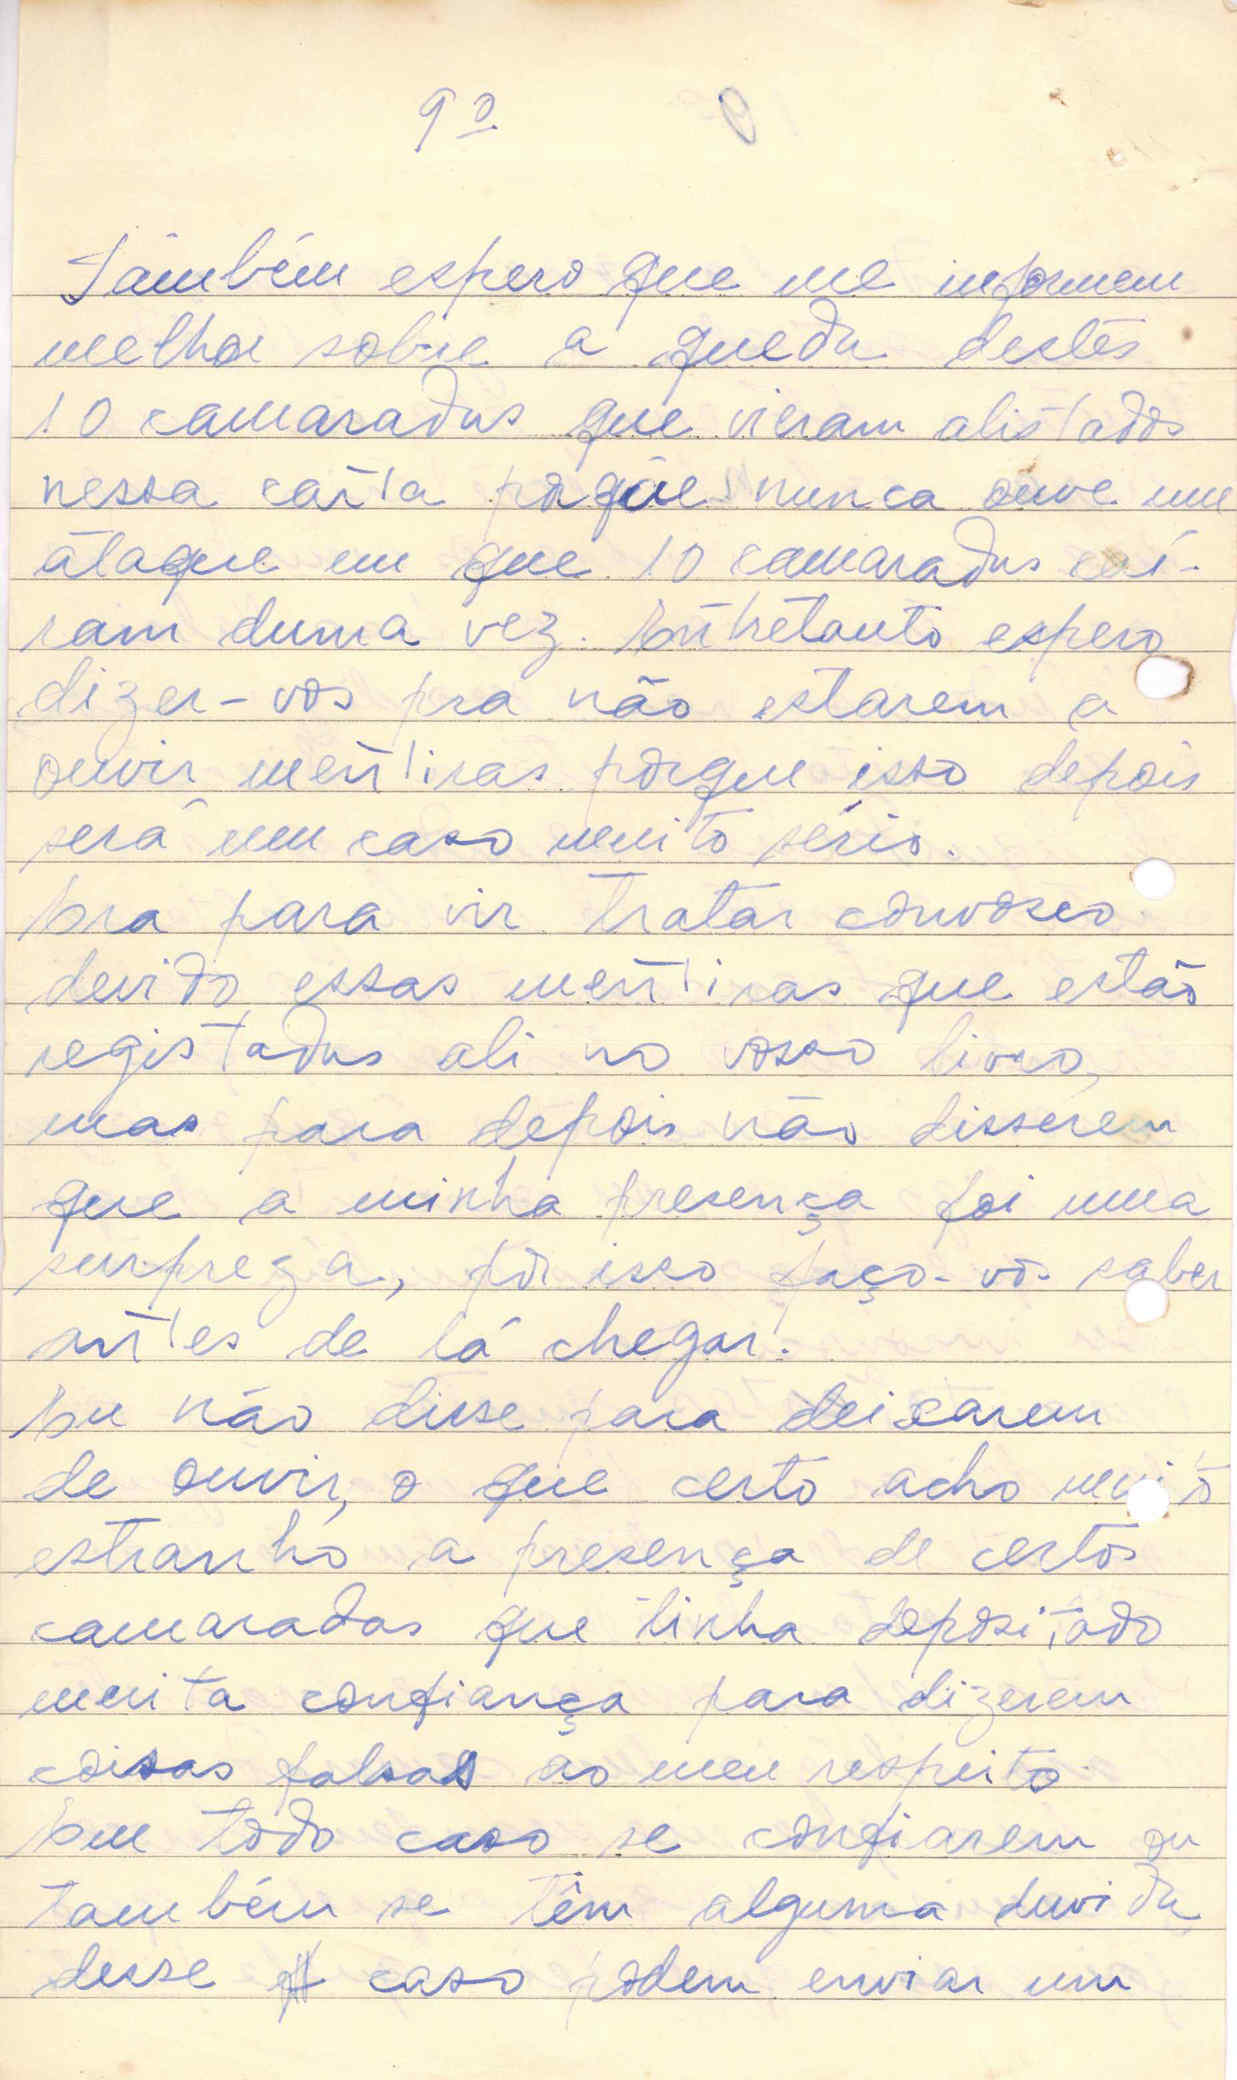 9º
Também espero que me informem
melhor sobre a queda destes
10 camaradas que vieram alistados
nessa carta porque nunca ouve um
ataque em que 10 camaradas caí-
ram duma vez. Entretanto espero
dizer-vos pra não estarem a
ouvir mentiras porque isso depois
será um caso muito sério.
Era para vir tratar convosco
devido essas mentiras que estão
registadas ali no vosso livro,
mas para depois não disserem
que a minha presença foi uma
surpreza, por isso faço-vos saber
antes de lá chegar.
Eu não disse para deixarem
de ouvir, o que certo acho muito
estranho a presença de certos
camaradas que tinha depositado
muita confiança para dizerem
coisas falsas ao meu respeito
Em todo caso se confiarem ou
também se têm alguma duvida
desse caso podem enviar um